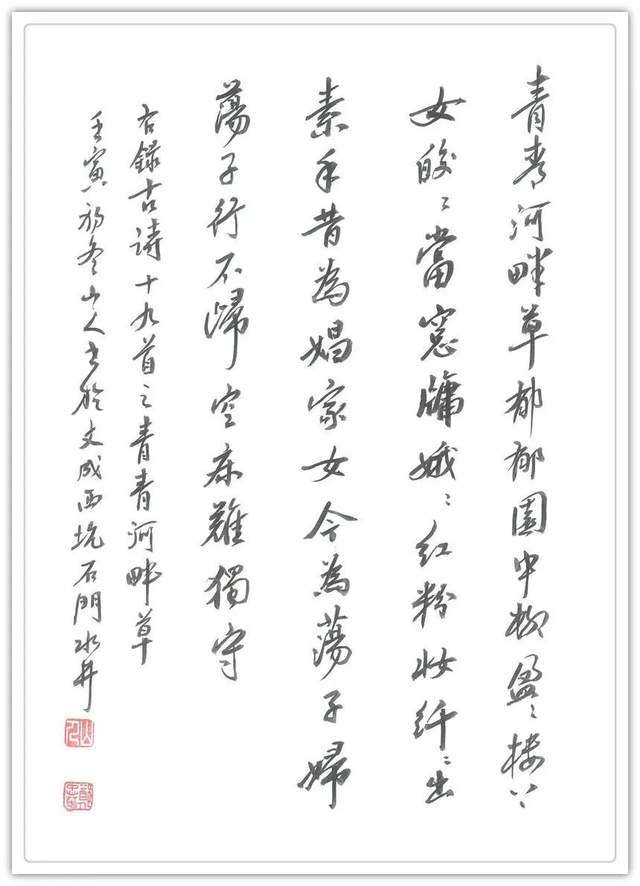 青青河畔草郁郁園中柳盈〻樓上
女皎〻當窓牖娥〻红粉妆纤〻出
素手昔為娼家女今為蕩子婦
蕩子行不歸空床難獨守
右録古詩十九首之青青河畔草
壬寅初冬山人書於文成西坑石門水井